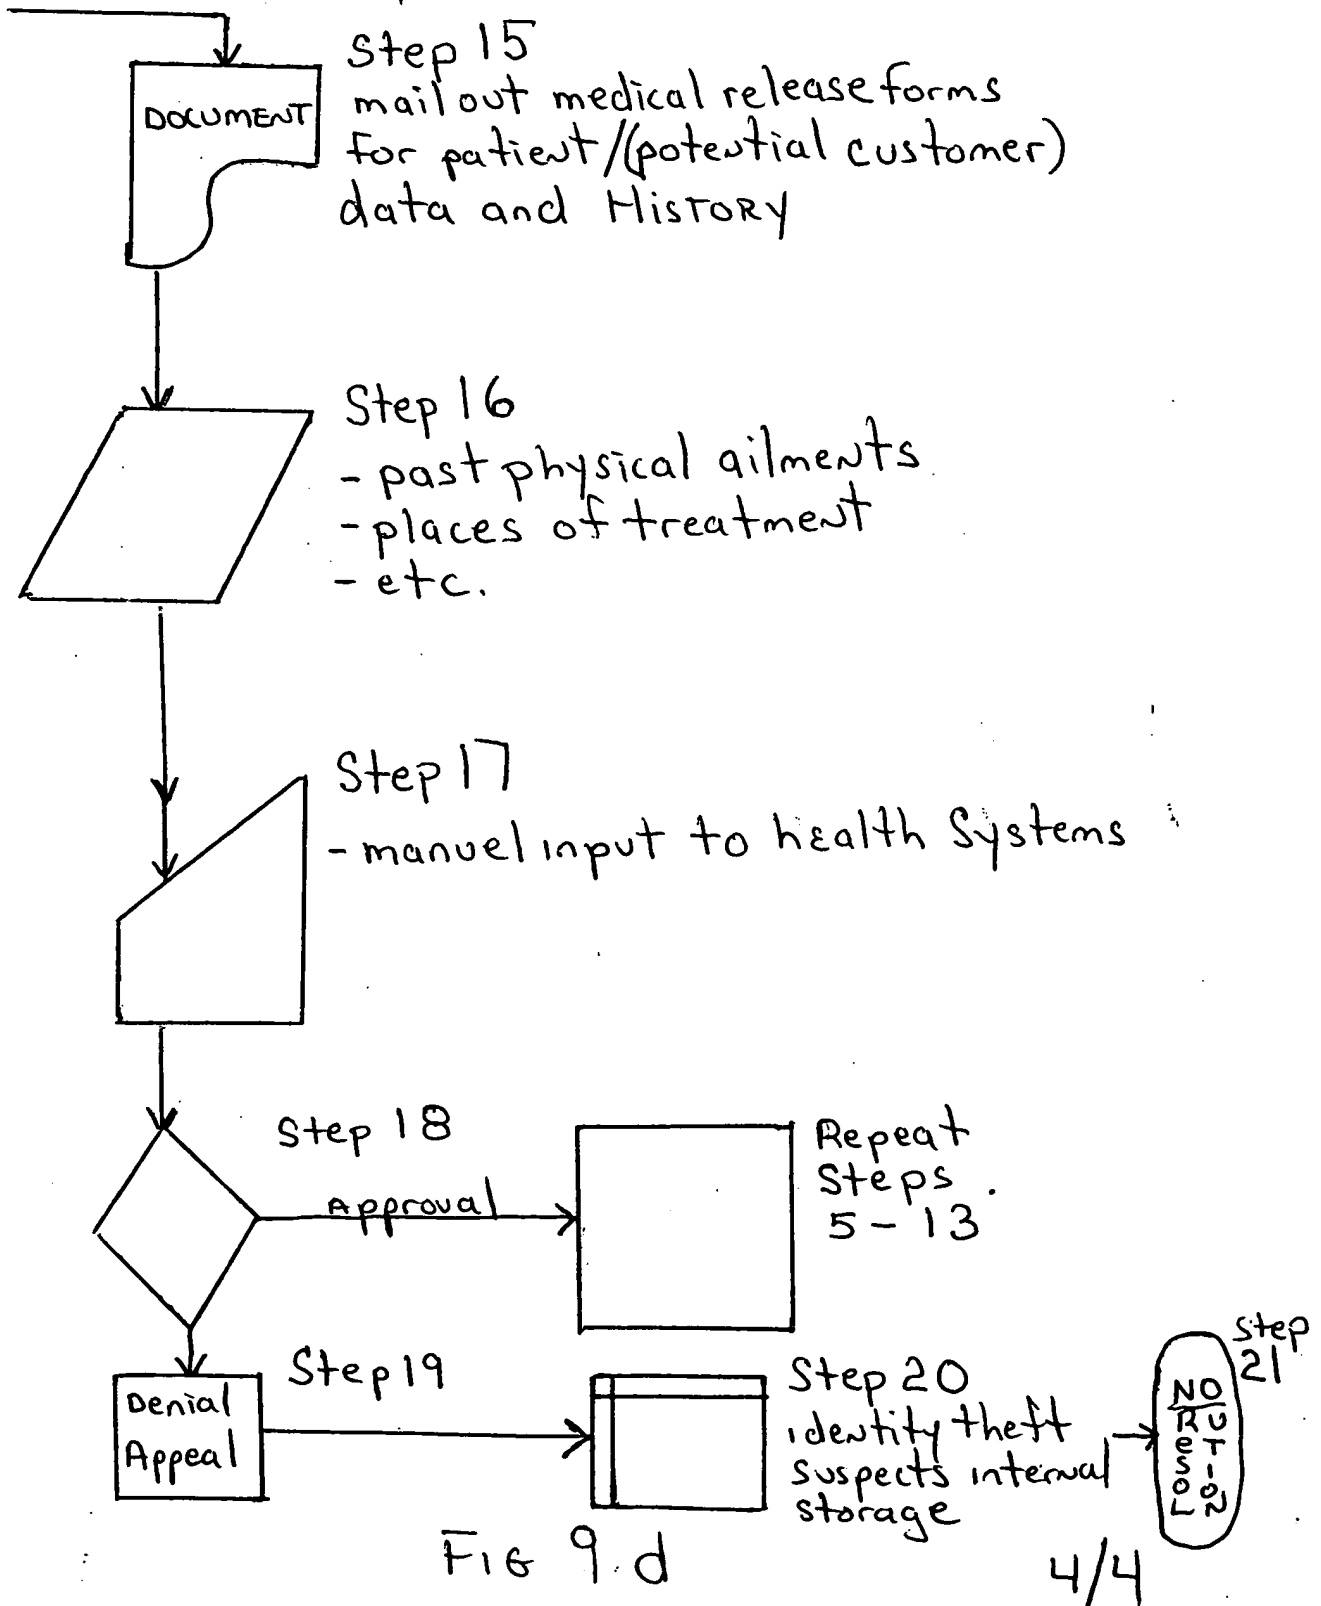 Step 15
DOCUMENT
mail out medical release forms
for patient/(potential customer)
data and HISTORY
Step 16
- past physical ailments
- places of treatment
- etc.
Step 17
- manuel input to health Systems
Step 18
Approval
Repeat
Steps
5 - 13
Denial
Appeal
Step 19
Step 20
identity theft
suspects internal
storage
Step
21
NO
ResoL
UTION
FIG 9.d
4/4